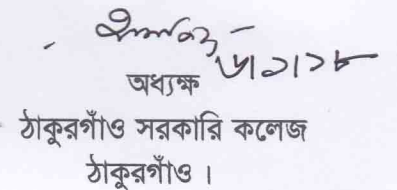 ৬/১/১৮
অধ্যক্ষ
ঠাকুরগাঁও সরকারি কলেজ
ঠাকুরগাঁও ।